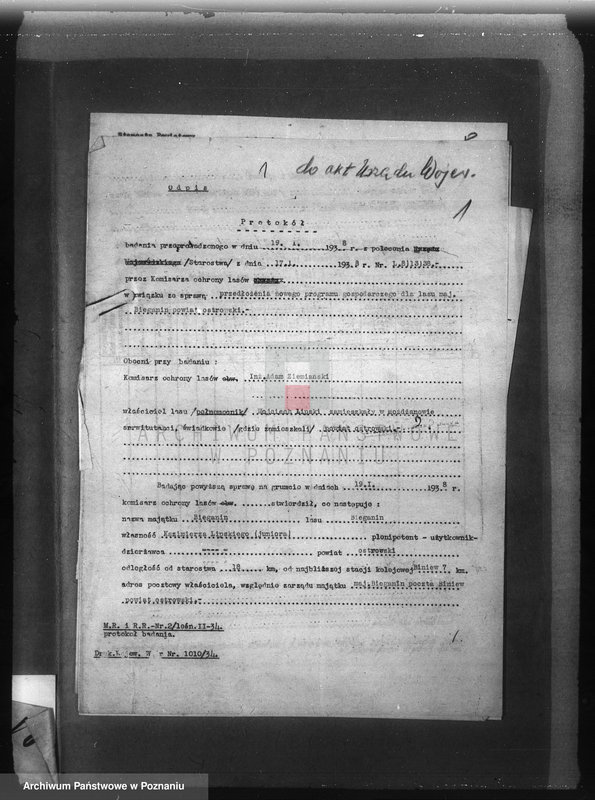 Starosta Powiatowy
1 do akt Urzędu Wojew.
Odpis
1
Protokół
badania przeprowadzonego w dniu 19. I. 1938 r. z polecenia Urzędu
Wojewódzkiego /Starostwa/ z dnia 17.1. 1938 r. Nr. L.8|13|38.-
przez Komisarza ochrony lasów
w związku ze sprawą przedłożenia nowego programu gospodarczego dla lasu maj.
Bieganin powiat ostrowski.-
Obecni przy badaniu :
Komisarz ochrony lasów obw. Inż.Adam Ziemianski
właściciel lasu /pełnomocnik/ Wojciech Lipski zamieszkały w
serwitutanci, świadkowie /gdzie zamieszkali/ powiat ostrowski.-
ARCHIWUM PAŃSTWOWE
W POZNANIU
Badając powyższą sprawę na gruncie w dniach 19.I. 1938 r.
komisarz ochrony lasów obw. stwierdził, co następuje :
nazwa majątku Bieganin lasu Bieganin
własność Kazimierza Lipskiego (juniora) plenipotent - użytkownik-
dzierżawca ---- - powiat ostrowski
odległość od starostwa 18 km, od najbliższej stacji kolejowej Biniew 7 km.
adres pocztowy właściciela, względnie zarządu majątku maj.Bieganin poczta Biniew
powiat ostrowski.-
M.R. i R.R.-Nr.2/lośn.II-34.
protokół badania.
Druk.Wojew. Nr. 1010/34.
Archiwum Państwowe w Poznaniu